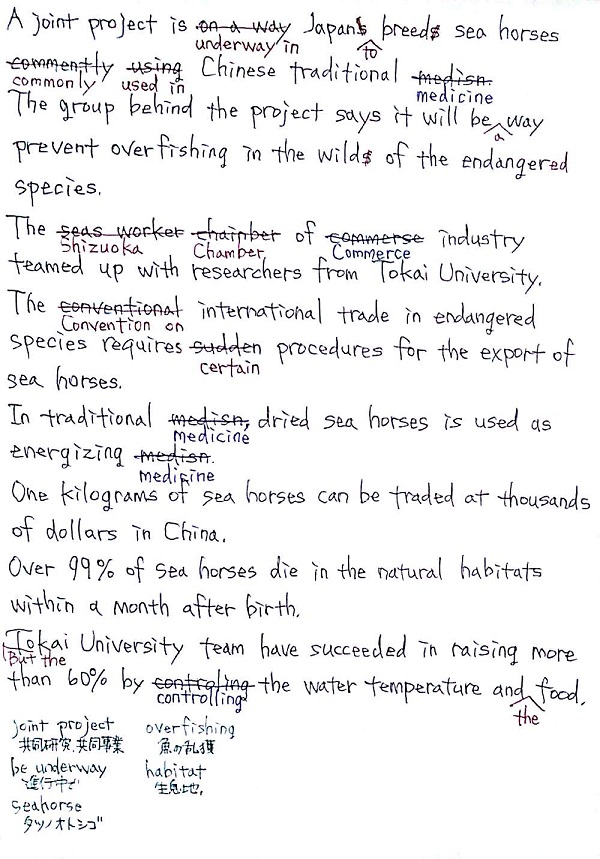 A joint project is on a way Japans breeds sea horses
underway in to
commently using Chinese traditional medisn.
commonly used in medicine
The group behind the project says it will be way
a
prevent overfishing in the wilds of the endangered
species.
The seas worker chainber of commerse industry
Shizuoka Chamber Commerce
teamed up with researchers from Tokai University.
The conventional international trade in endangered
Convention on
species requires sudden procedures for the export of
certain
sea horses.
In traditional medisn, dried sea horses is used as
medicine
energizing medisn.
medicine
One kilograms of sea horses can be traded at thousands
of dollars in China.
Over 99% of sea horses die in the natural habitats
within a month after birth.
Tokai University team have succeeded in raising more
But the
than 60% by controling the water temperature and food.
controlling the
joint project overfishing
共同研究、共同事業 魚の乱獲
be underway habitat
進行中で 生息地,
seahorse
タツノオトシゴ